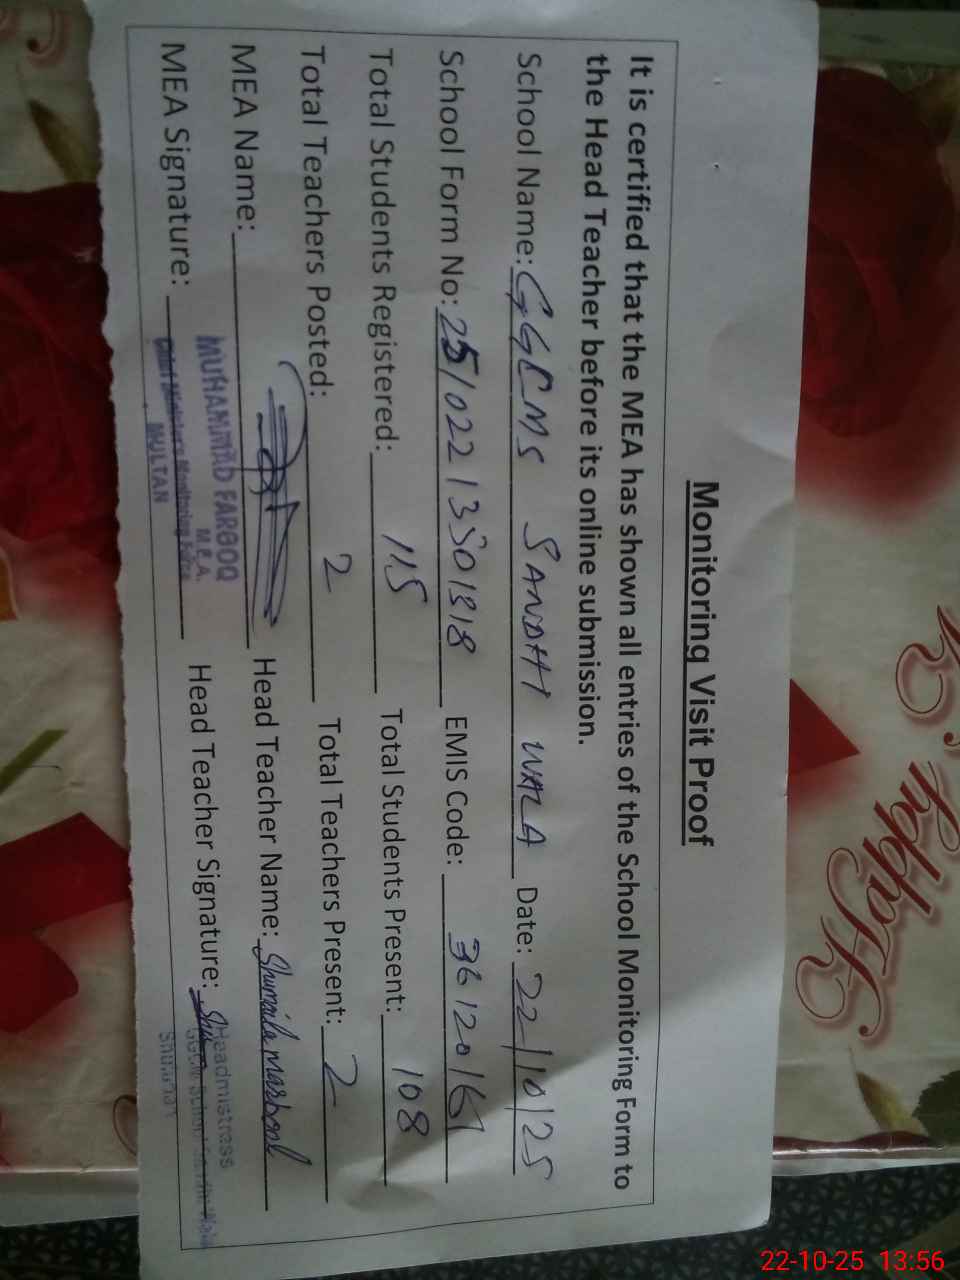 Monitoring Visit Proof
It is certified that the MEA has shown all entries of the School Monitoring Form to
the Head Teacher before its online submission.
School Name: GGCMS SANDHI WALA Date: 22/10/25
School Form No: 25/02213301818 EMIS Code: 3612016
Total Students Registered: 115 Total Students Present: 108
Total Teachers Posted: 2 Total Teachers Present: 2
MEA Name: Head Teacher Name: Shumaila
MUHAMMAD FAROOQ
M.E.A.
MEA Signature: Head Teacher Signature:
Chief Minister's Monitoring Force
MULTAN
Headmistress
Happy
22-10-25 13:56